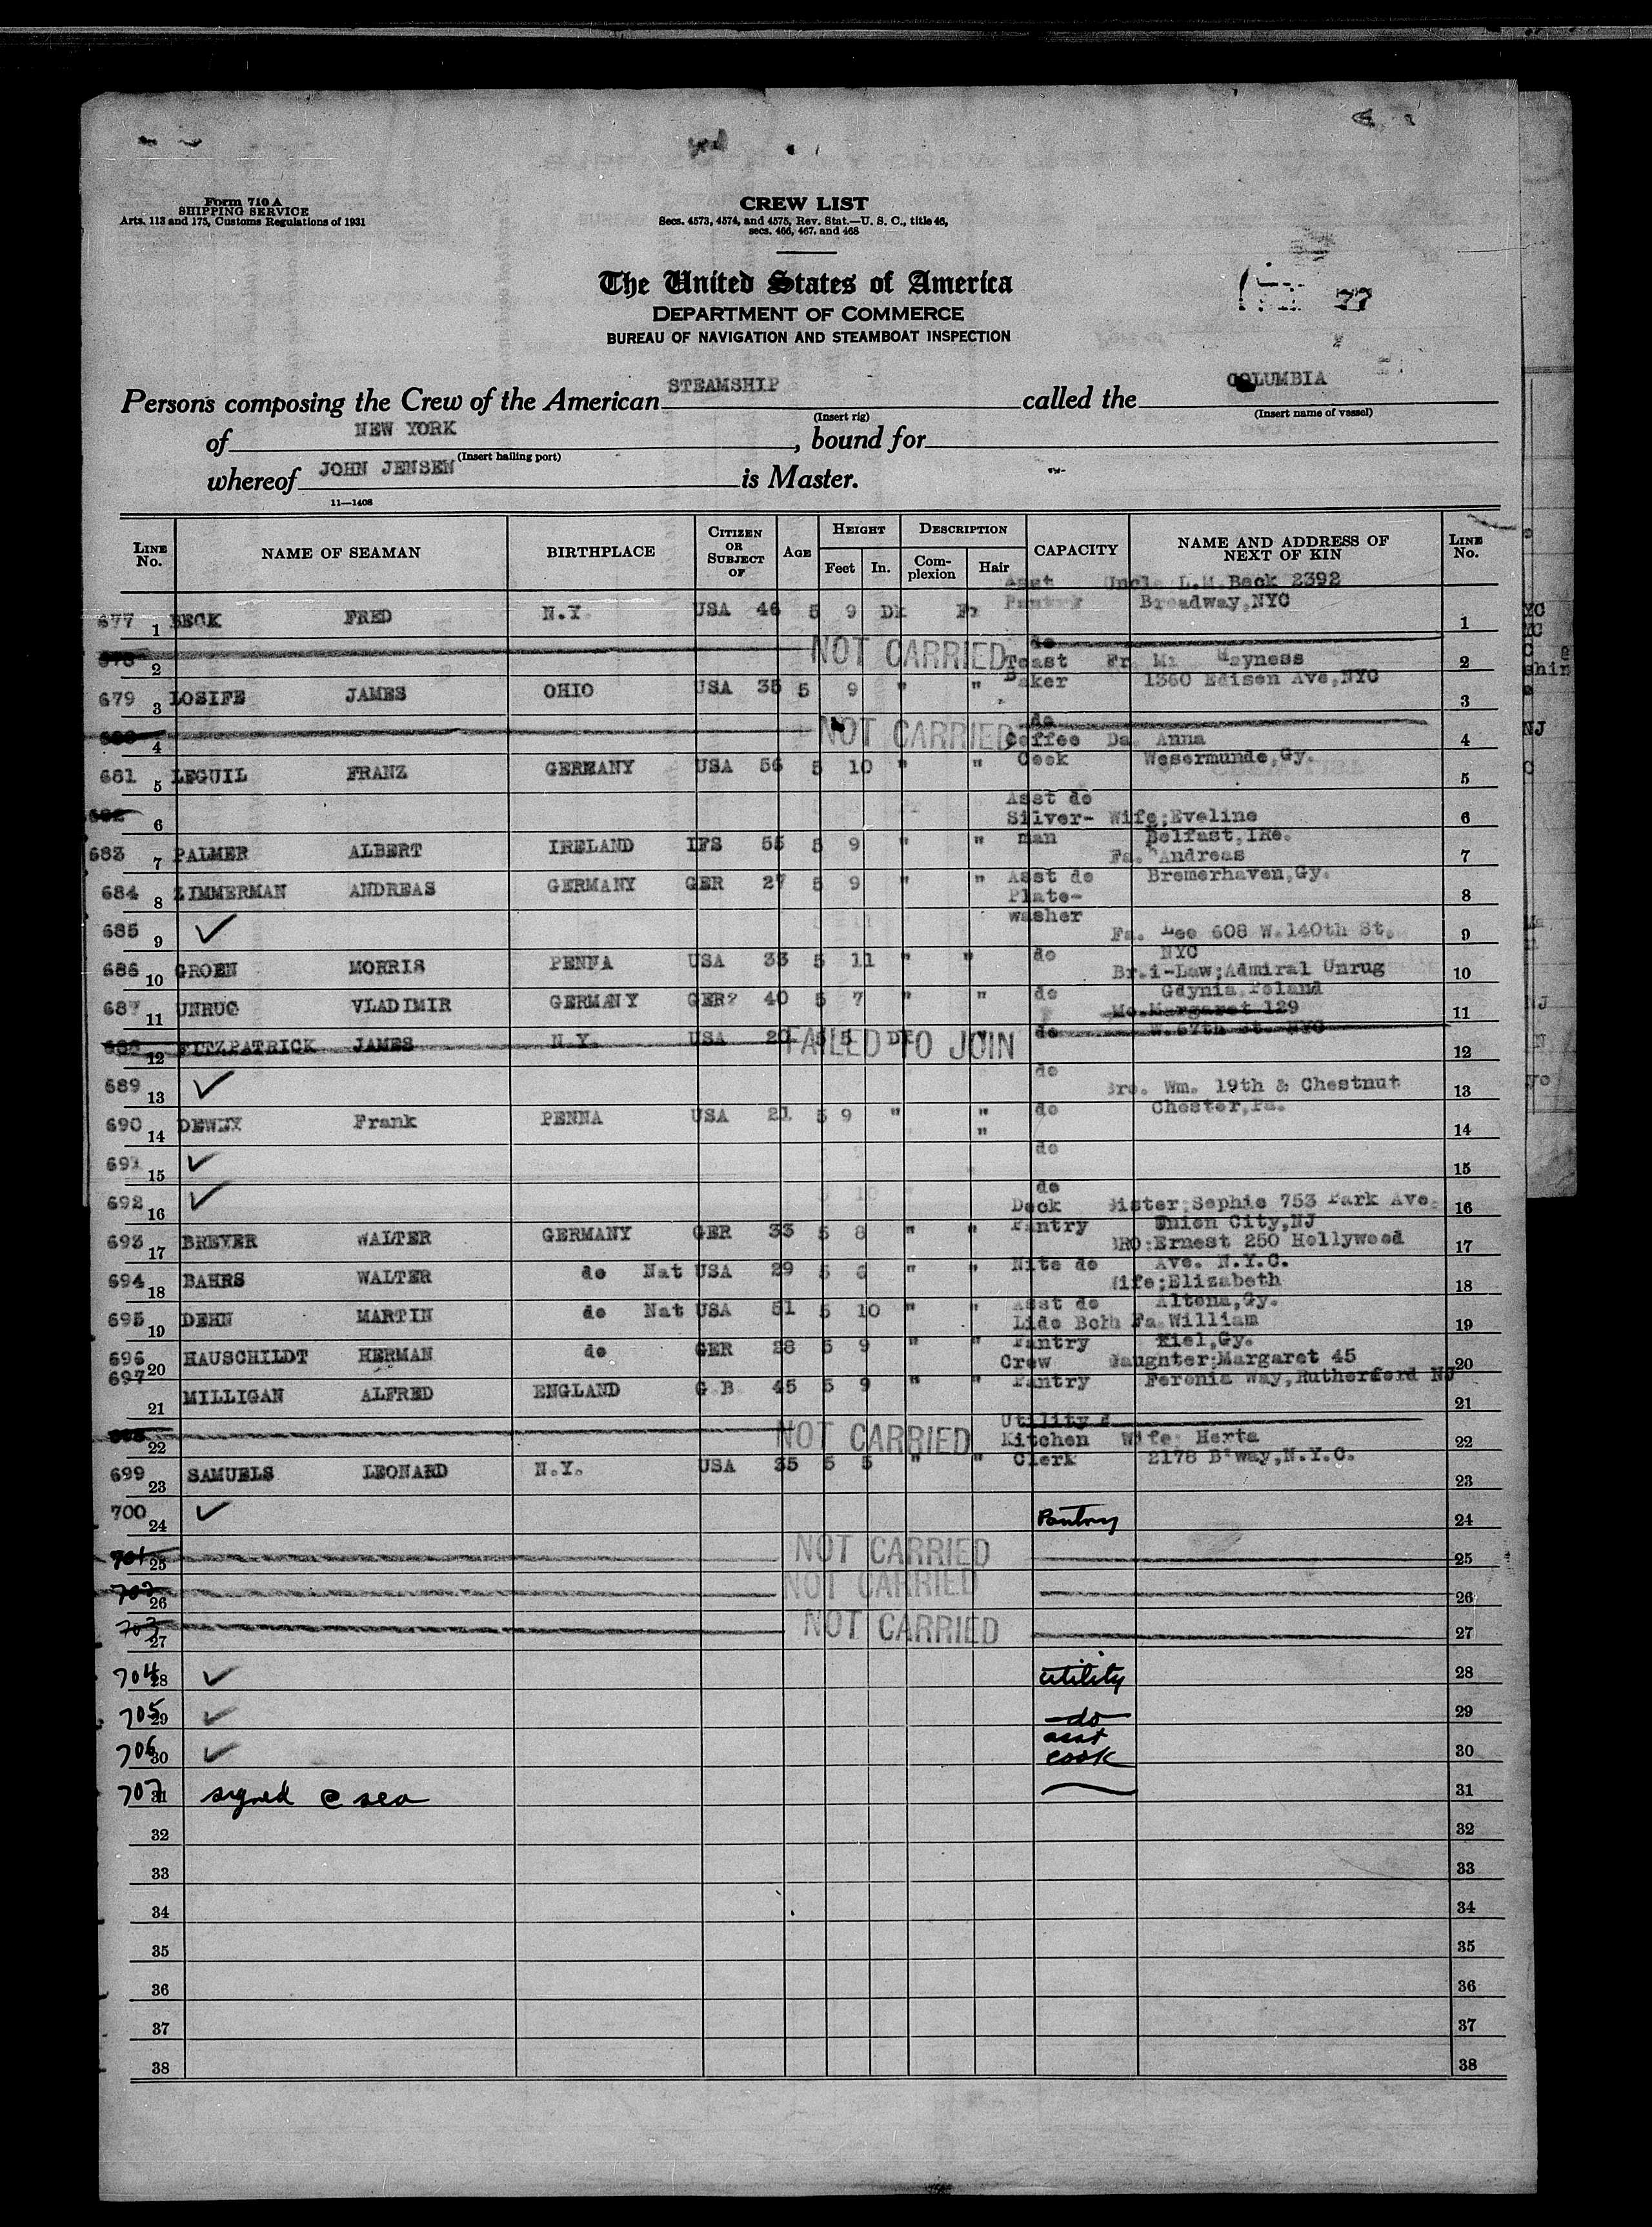 Form 710 A
SHIPPING SERVICE
Arts. 113 and 175, Customs Regulations of 1931
CREW LIST
Secs. 4573, 4574, and 4575, Rev. Stat.—U. S. C., title 46,
secs. 466, 467, and 468
The United States of America
DEPARTMENT OF COMMERCE
BUREAU OF NAVIGATION AND STEAMBOAT INSPECTION
77
Persons composing the Crew of the American STEAMSHIP called the COLUMBIA
(Insert rig) (Insert name of vessel)
of NEW YORK, bound for
(Insert hailing port)
whereof JOHN JENSEN is Master.
11—1408
LINE No. NAME OF SEAMAN BIRTHPLACE CITIZEN OR SUBJECT OF AGE HEIGHT Feet In. DESCRIPTION Complexion Hair CAPACITY NAME AND ADDRESS OF NEXT OF KIN LINE No.
Asst Uncle L.M.Beck 2392
677 1 BECK FRED N.Y. USA 46 5 9 Dk Pantry Broadway,NYC 1
678 2 NOT CARRIED do 2
Toast
679 3 LOSIFE JAMES OHIO USA 35 5 9 " " Baker 1360 Edison Ave,NYC 3
680 4 NOT CARRIED do 4
Coffee Da. Anna
681 5 LEGUIL FRANZ GERMANY USA 56 5 10 " " Cook Wesermunde,Gy. 5
682 6 Asst do 6
Silver- Wife;Eveline
683 7 PALMER ALBERT IRELAND IFS 55 5 9 " " man Belfast,IRe. 7
Fa. Andreas
684 8 ZIMMERMAN ANDREAS GERMANY GER 27 5 9 " " Asst do Bremerhaven,Gy. 8
Plate-
685 9 ✓ washer 9
Fa. Lee 608 W.140th St.
686 10 GROEN MORRIS PENNA USA 33 5 11 " " do NYC 10
Br.i-Law;Admiral Unrug
687 11 UNRUG VLADIMIR GERMANY GER? 40 5 7 " " do Gdynia Poland 11
Mo.Margaret 129
688 12 FITZPATRICK JAMES N.Y. USA 20 5 5 Dk FAILED TO JOIN do W.67th St. NYC 12
689 13 ✓ do 13
Bro. Wm. 19th & Chestnut
690 14 DEWEY Frank PENNA USA 21 5 9 " " do Chester,Pa. 14
"
691 15 ✓ do 15
692 16 ✓ do 16
Deck Sister;Sophie 753 Park Ave.
693 17 BREYER WALTER GERMANY GER 33 5 8 " " Pantry Union City,NJ 17
BRO:Ernest 250 Hollywood
694 18 BAHRS WALTER do Nat USA 29 5 6 " " Nite do Ave. N.Y.C. 18
Wife;Elizabeth
695 19 DEHN MARTIN do Nat USA 51 5 10 " " Asst do Altona,Gy. 19
Lido Fa.William
696 20 HAUSCHILDT HERMAN do GER 28 5 9 " " Pantry Kiel,Gy. 20
Crew Daughter;Margaret 45
697 21 MILLIGAN ALFRED ENGLAND G.B. 45 5 9 " " Pantry Feronia Way,Rutherford NJ 21
698 22 NOT CARRIED Utility 22
Kitchen Wife; Herta
699 23 SAMUELS LEONARD N.Y. USA 35 5 5 " " Clerk 2178 B'way,N.Y.C. 23
700 24 ✓ Pantry 24
701 25 NOT CARRIED 25
702 26 NOT CARRIED 26
703 27 NOT CARRIED 27
704 28 ✓ utility 28
705 29 ✓ do 29
706 30 ✓ asst cook 30
707 31 signed @ sea 31
32 32
33 33
34 34
35 35
36 36
37 37
38 38